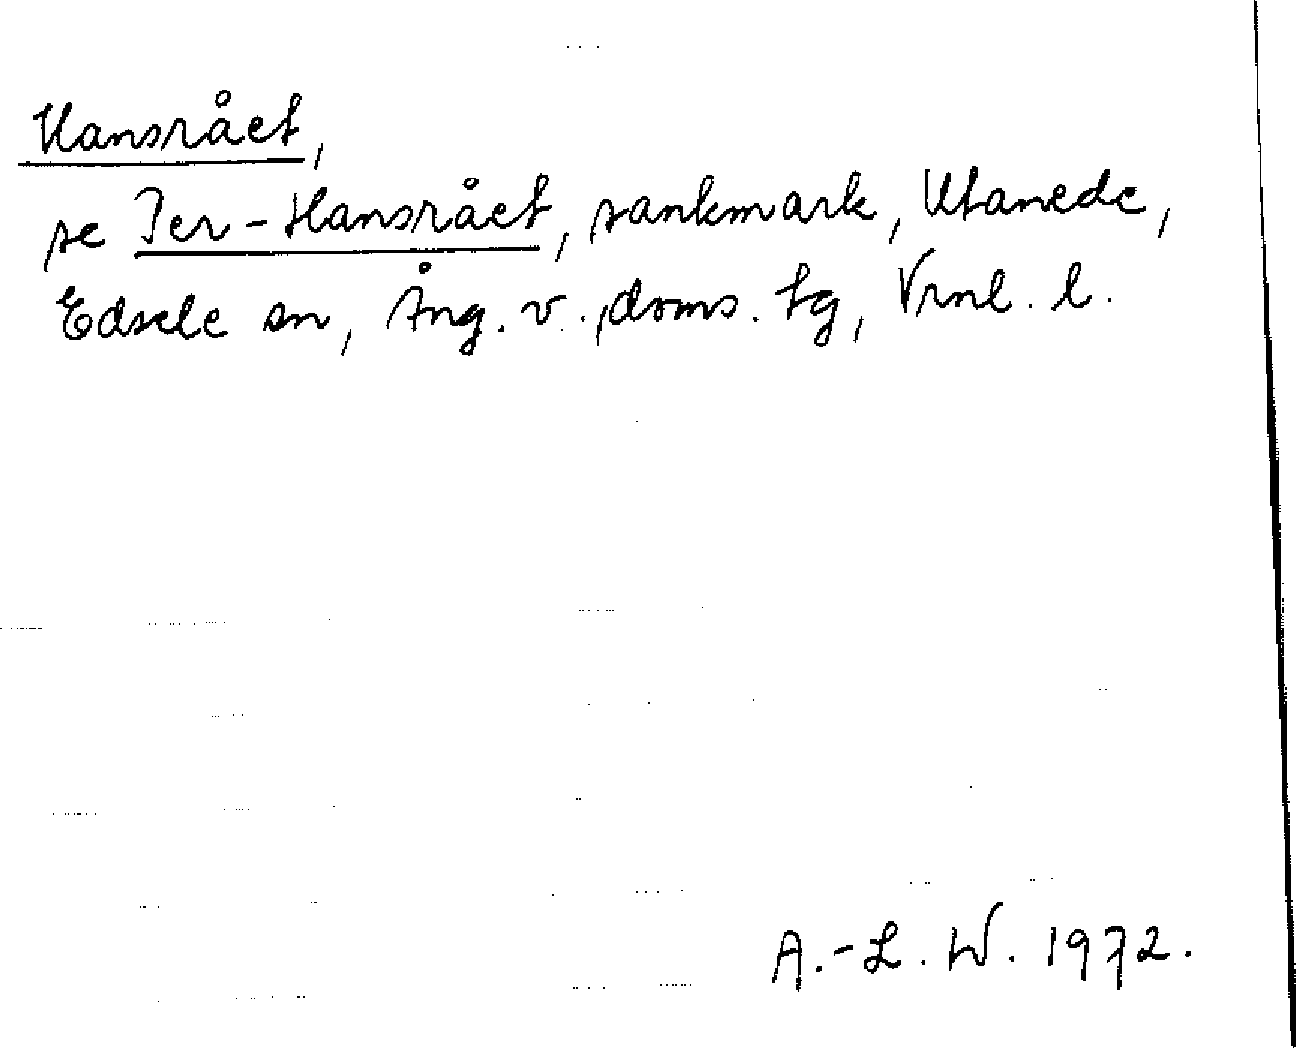 Hansrået,
se Per-Hansrået, sankmark, Utanede,
Edsele sn, Ång. v. doms. tg, Vrnl. l.
A.-L. W. 1972.